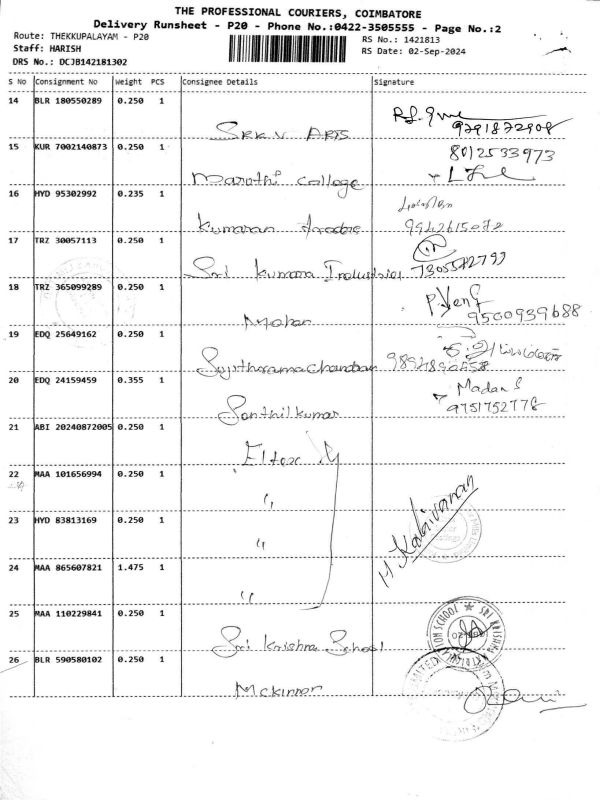 THE PROFESSIONAL COURIERS, COIMBATORE
Delivery Runsheet - P20 - Phone No.:0422-3505555 - Page No.:2
Route: THEKKUPALAYAM - P20
RS No.: 1421813
Staff: HARISH
RS Date: 02-Sep-2024
DRS No.: DCJB142181302
S No Consignment No Weight PCS Consignee Details Signature
14 BLR 180550289 0.250 1
9791872908
SRK.V ARTS
15 KUR 7002140873 0.250 1
8012533973
Marathi College
16 HYD 95302992 0.235 1
Kumaran
9942615072
17 TRZ 30057113 0.250 1
Sri Kumara Industries
7305572797
18 TRZ 365099289 0.250 1
P.Veng
9500939688
Mohan
19 EDQ 25649162 0.250 1
Sujithramachandran
20 EDQ 24159459 0.355 1
Madan S
9751752778
Santhilkumar
21 ABI 20240872005 0.250 1
Eltex
22 MAA 101656994 0.250 1
"
23 HYD 83813169 0.250 1
"
M. Kalaivanan
24 MAA 865607821 1.475 1
"
25 MAA 110229841 0.250 1
Sri Krishna School
26 BLR 590580102 0.250 1
Mckinnor